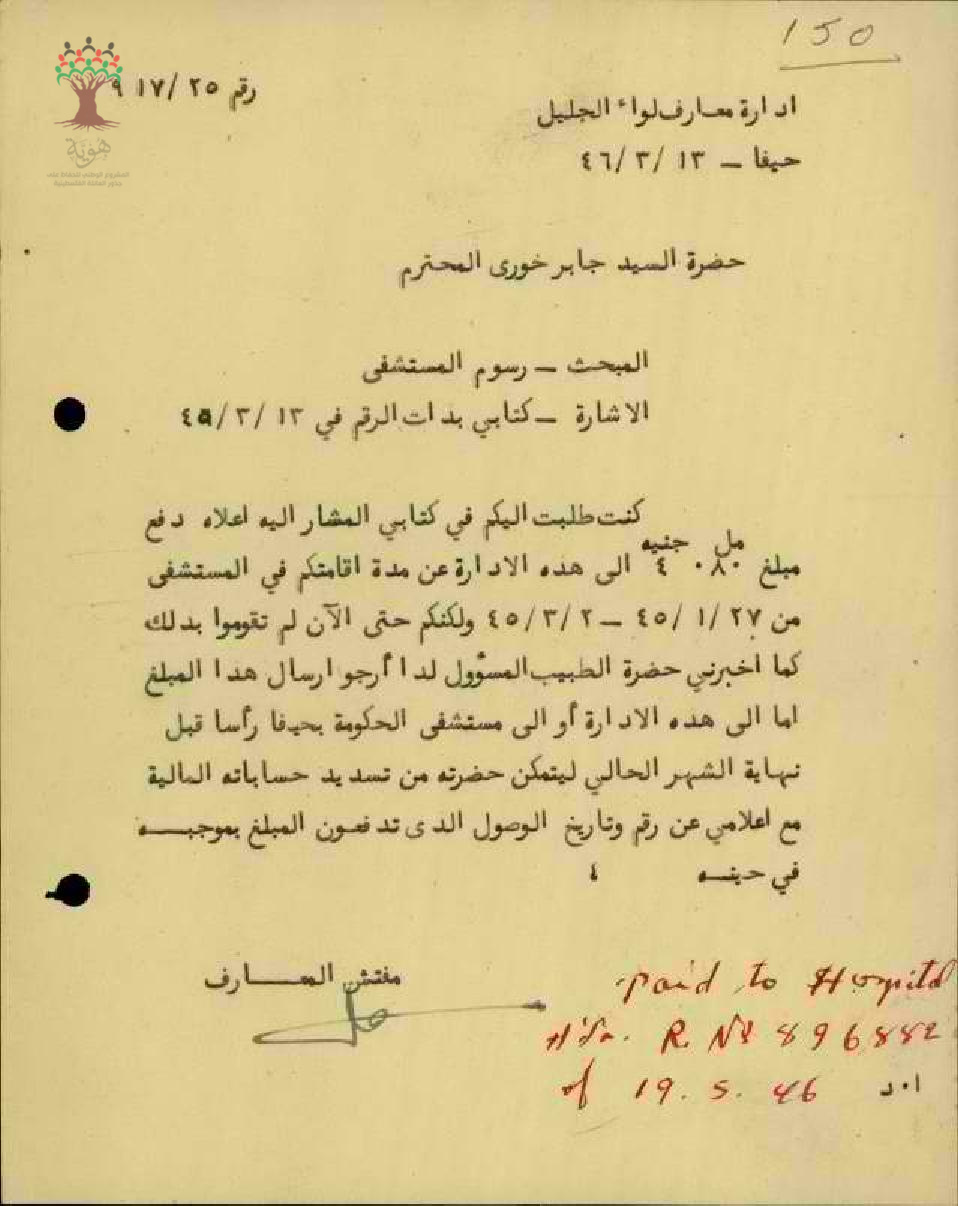 150
رقم ٢٥/ ١٧ ٩
هوية
المشروع الوطني للحفاظ على
جذور العائلة الفلسطينية
ادارة معارف لواء الجليل
حيفا – ١٣ /٣ /٤٦
حضرة السيد جابر خورى المحترم
المبحث – رسوم المستشفى
الاشارة – كتابي بدات الرقم في ١٣ /٣ /٤٥
كنت طلبت اليكم في كتابي المشار اليه اعلاه دفع
مل جنيه
مبلغ ٠٨٠ ٤ الى هده الادارة عن مدة اقامتكم في المستشفى
من ٢٧ /١ /٤٥ – ٢ /٣ /٤٥ ولكنكم حتى الآن لم تقوموا بدلك
كما اخبرني حضرة الطبيب المسؤول لدا أرجو ارسال هدا المبلغ
اما الى هده الادارة أو الى مستشفى الحكومة بحيفا رأسا قبل
نهاية الشهر الحالي ليتمكن حضرته من تسديد حساباته المالية
مع اعلامي عن رقم وتاريخ الوصول الدى تدفعون المبلغ بموجبـــه
في حينـــه ٤
مفتش المعـــارف
paid to Hospital
R. No 896882
of 19. 5. 46
ا٠د